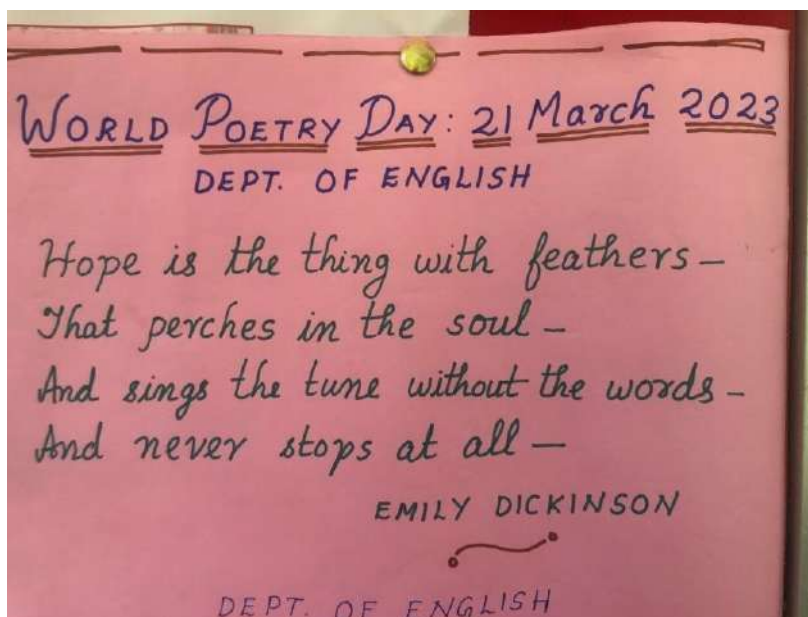 WORLD POETRY DAY: 21 March 2023
DEPT. OF ENGLISH
Hope is the thing with feathers –
That perches in the soul –
And sings the tune without the words –
And never stops at all –
EMILY DICKINSON
DEPT. OF ENGLISH